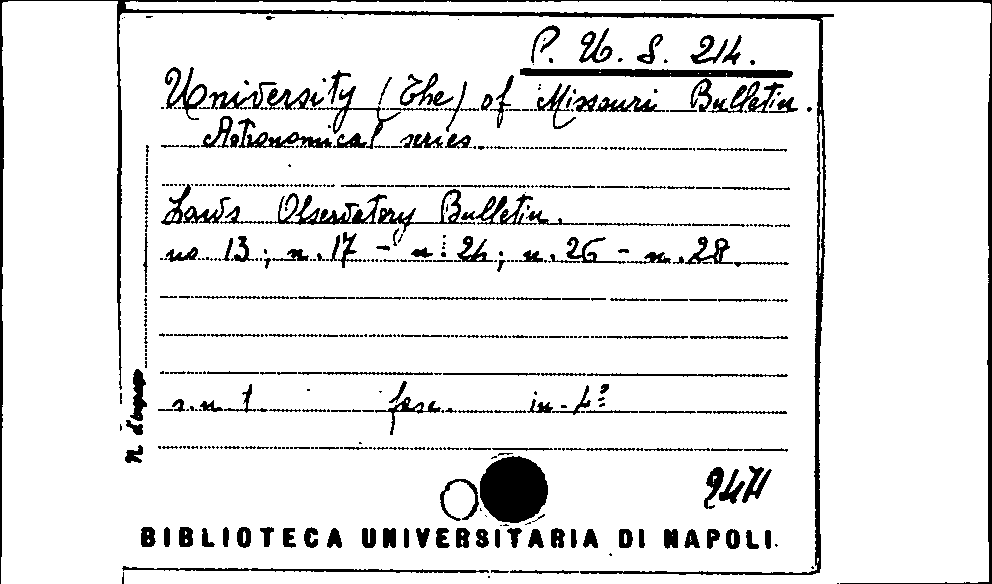 P. U. S. 214.
University (The) of Missouri Bulletin.
Astronomical series.
Laws Observatory Bulletin.
no. 13; n. 17 - n. 24; n. 26 - n. 28.
s.n.t. fasc. in-4º
N. d'ingresso
BIBLIOTECA UNIVERSITARIA DI NAPOLI.